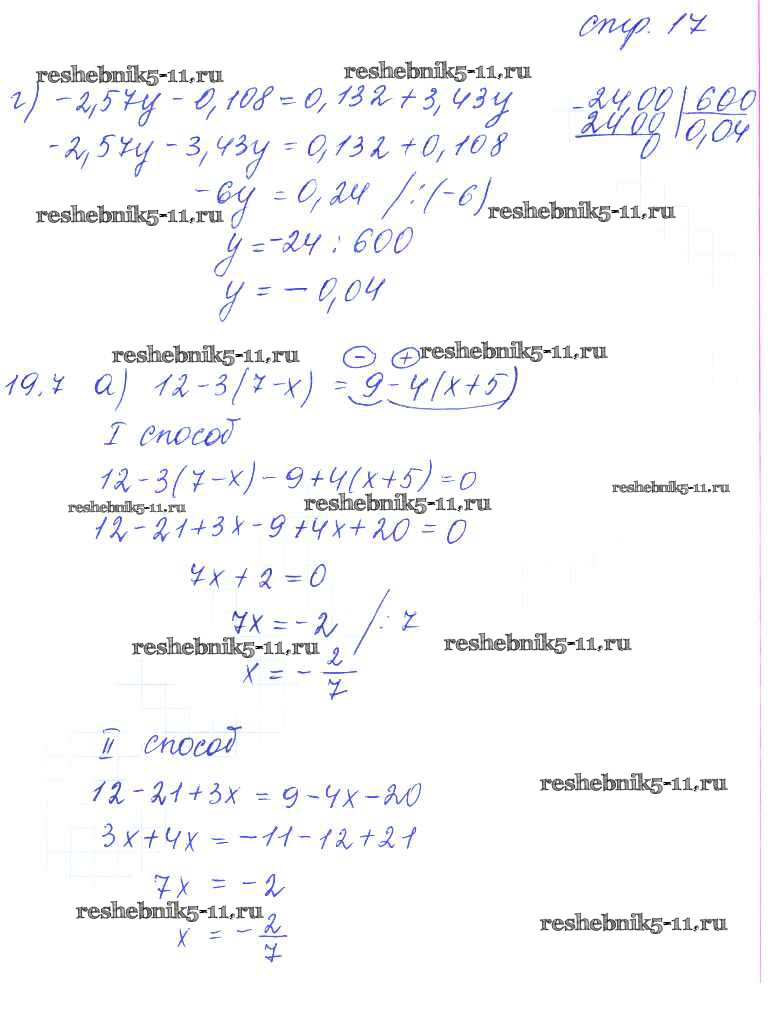 стр. 17
reshebnik5-11.ru reshebnik5-11.ru
г) -2,57y - 0,108 = 0,132 + 3,43y
-2,57y - 3,43y = 0,132 + 0,108
-6y = 0,24 /:(-6)
reshebnik5-11.ru reshebnik5-11.ru
y = -24 : 600
y = - 0,04
- 24,00 | 600
2400 | 0,04
0
reshebnik5-11.ru - + reshebnik5-11.ru
19.7 а) 12 - 3(7 - x) = 9 - 4(x + 5)
I способ
12 - 3(7 - x) - 9 + 4(x + 5) = 0
reshebnik5-11.ru
reshebnik5-11.ru reshebnik5-11.ru
12 - 21 + 3x - 9 + 4x + 20 = 0
7x + 2 = 0
7x = -2 /: 7
reshebnik5-11.ru reshebnik5-11.ru
x = - 2/7
II способ
reshebnik5-11.ru
12 - 21 + 3x = 9 - 4x - 20
3x + 4x = -11 - 12 + 21
7x = -2
reshebnik5-11.ru reshebnik5-11.ru
x = - 2/7